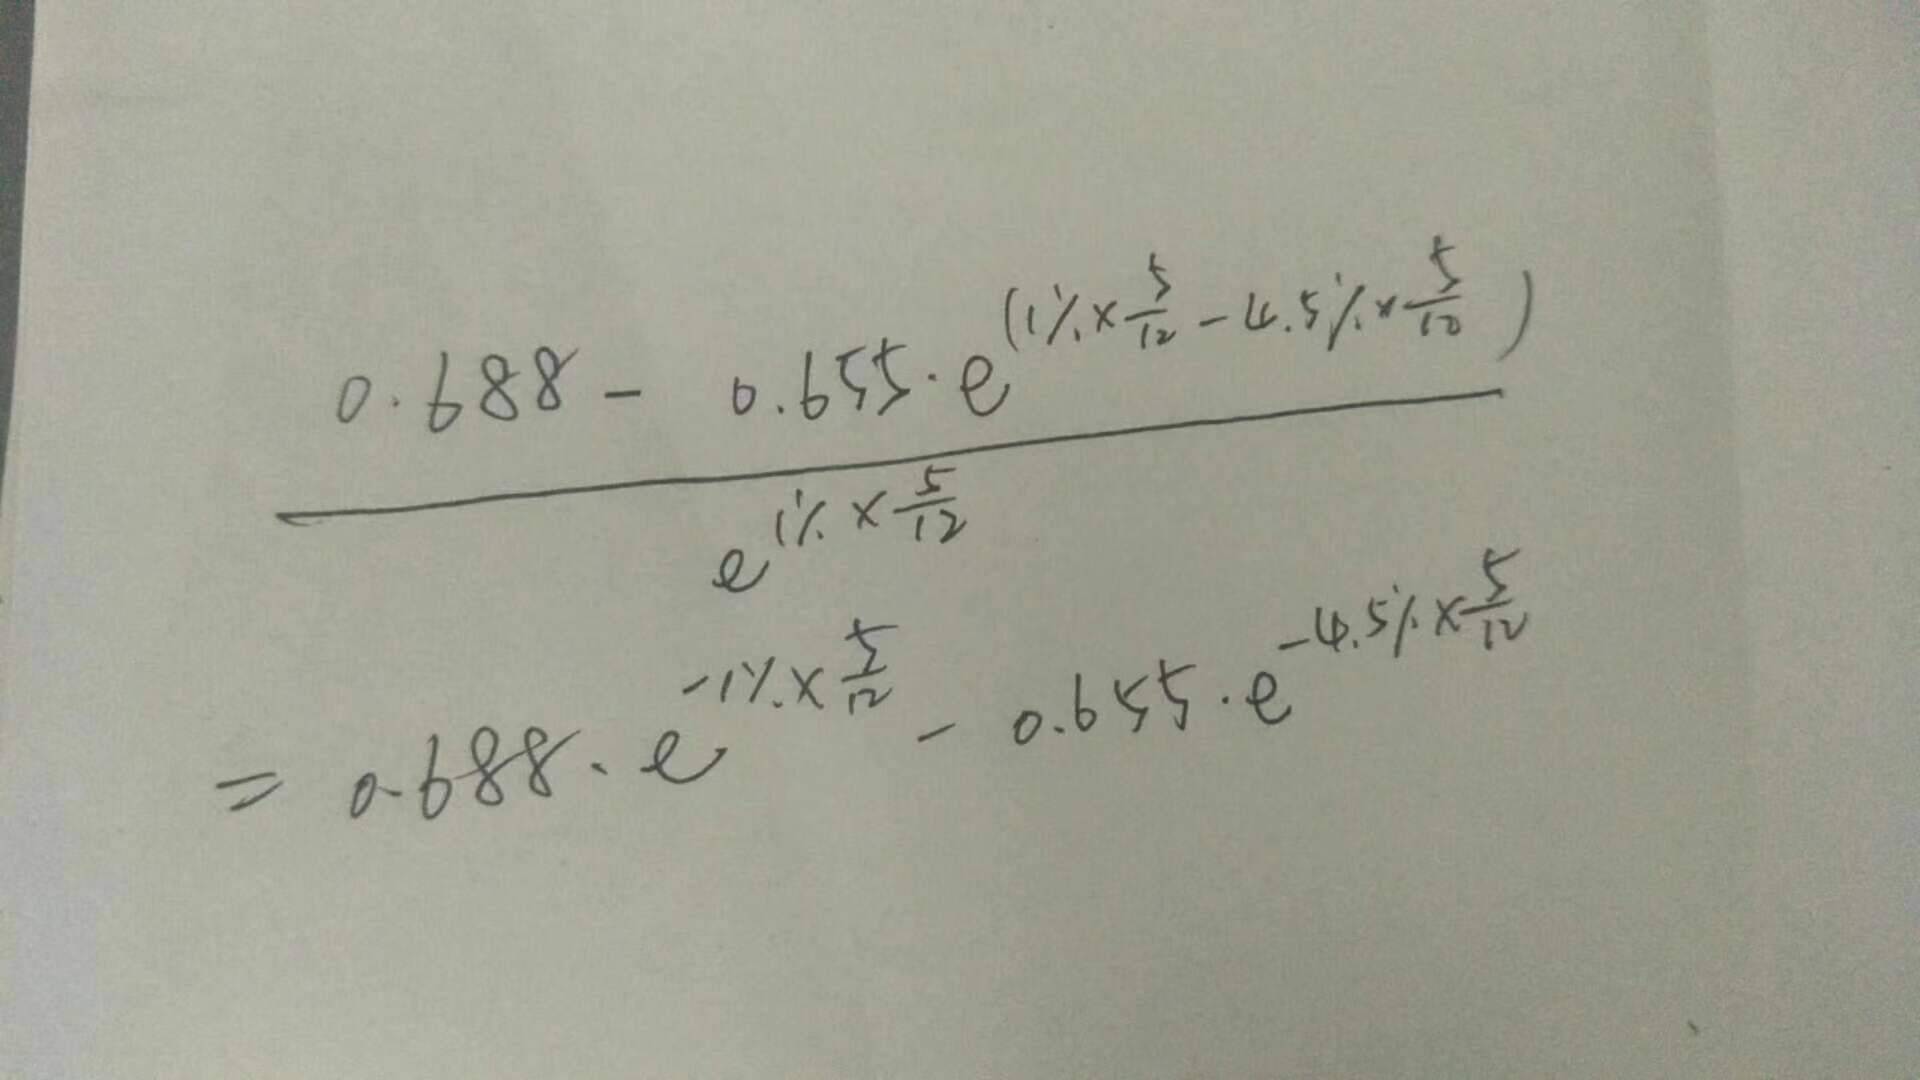 0.688 - 0.655 · e^(1% × 5/12 - 4.5% × 5/12)
e^1% × 5/12
= 0.688 · e^-1% × 5/12 - 0.655 · e^-4.5% × 5/12